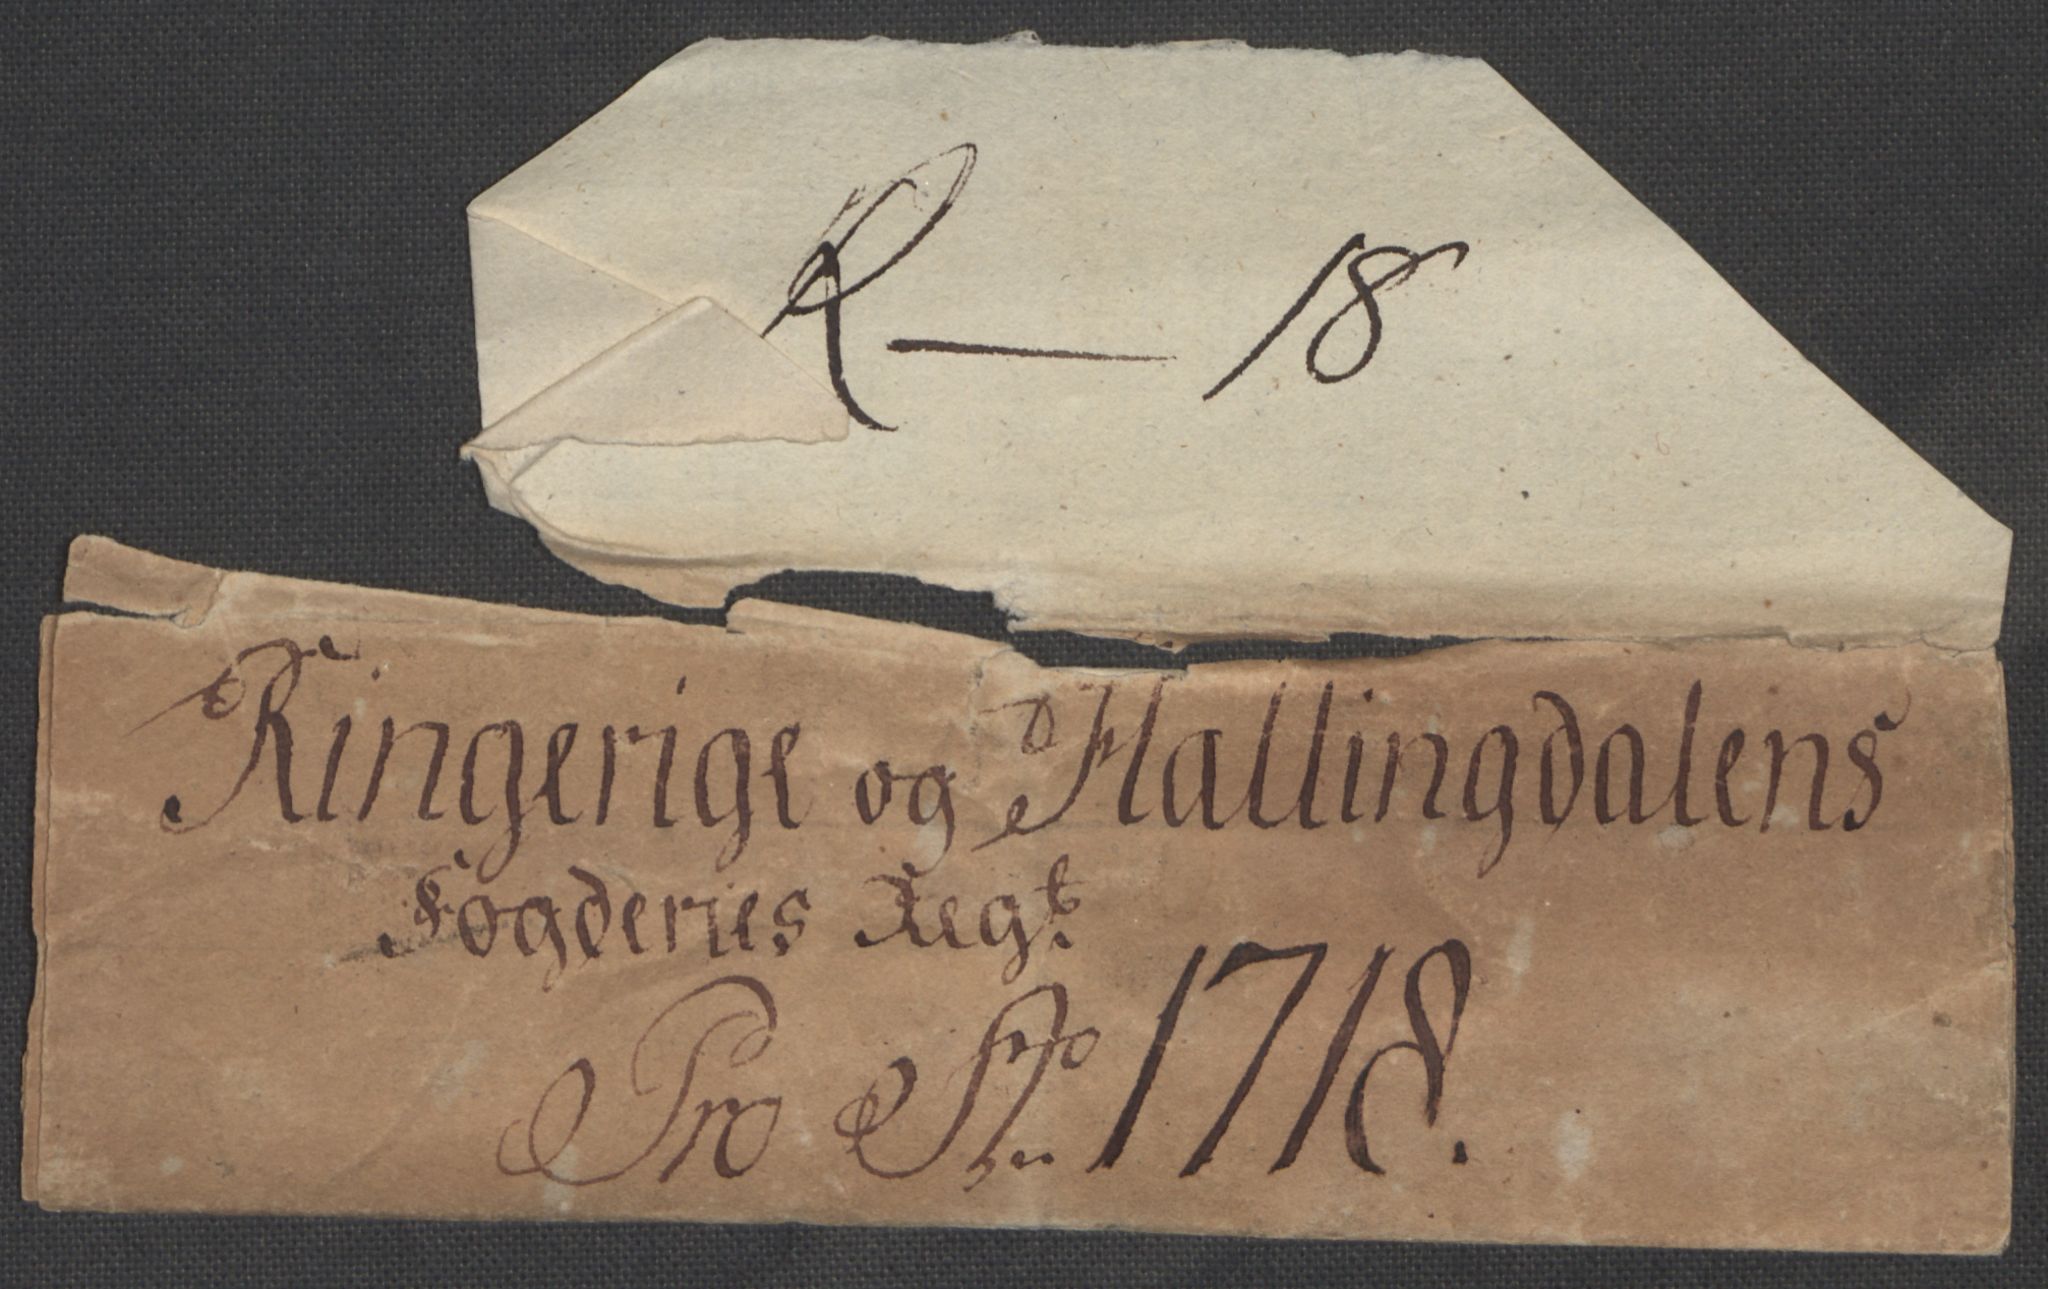 R — 18
Ringerige og Hallingdalens
Fogderies Regb.
Pro Ao 1718.